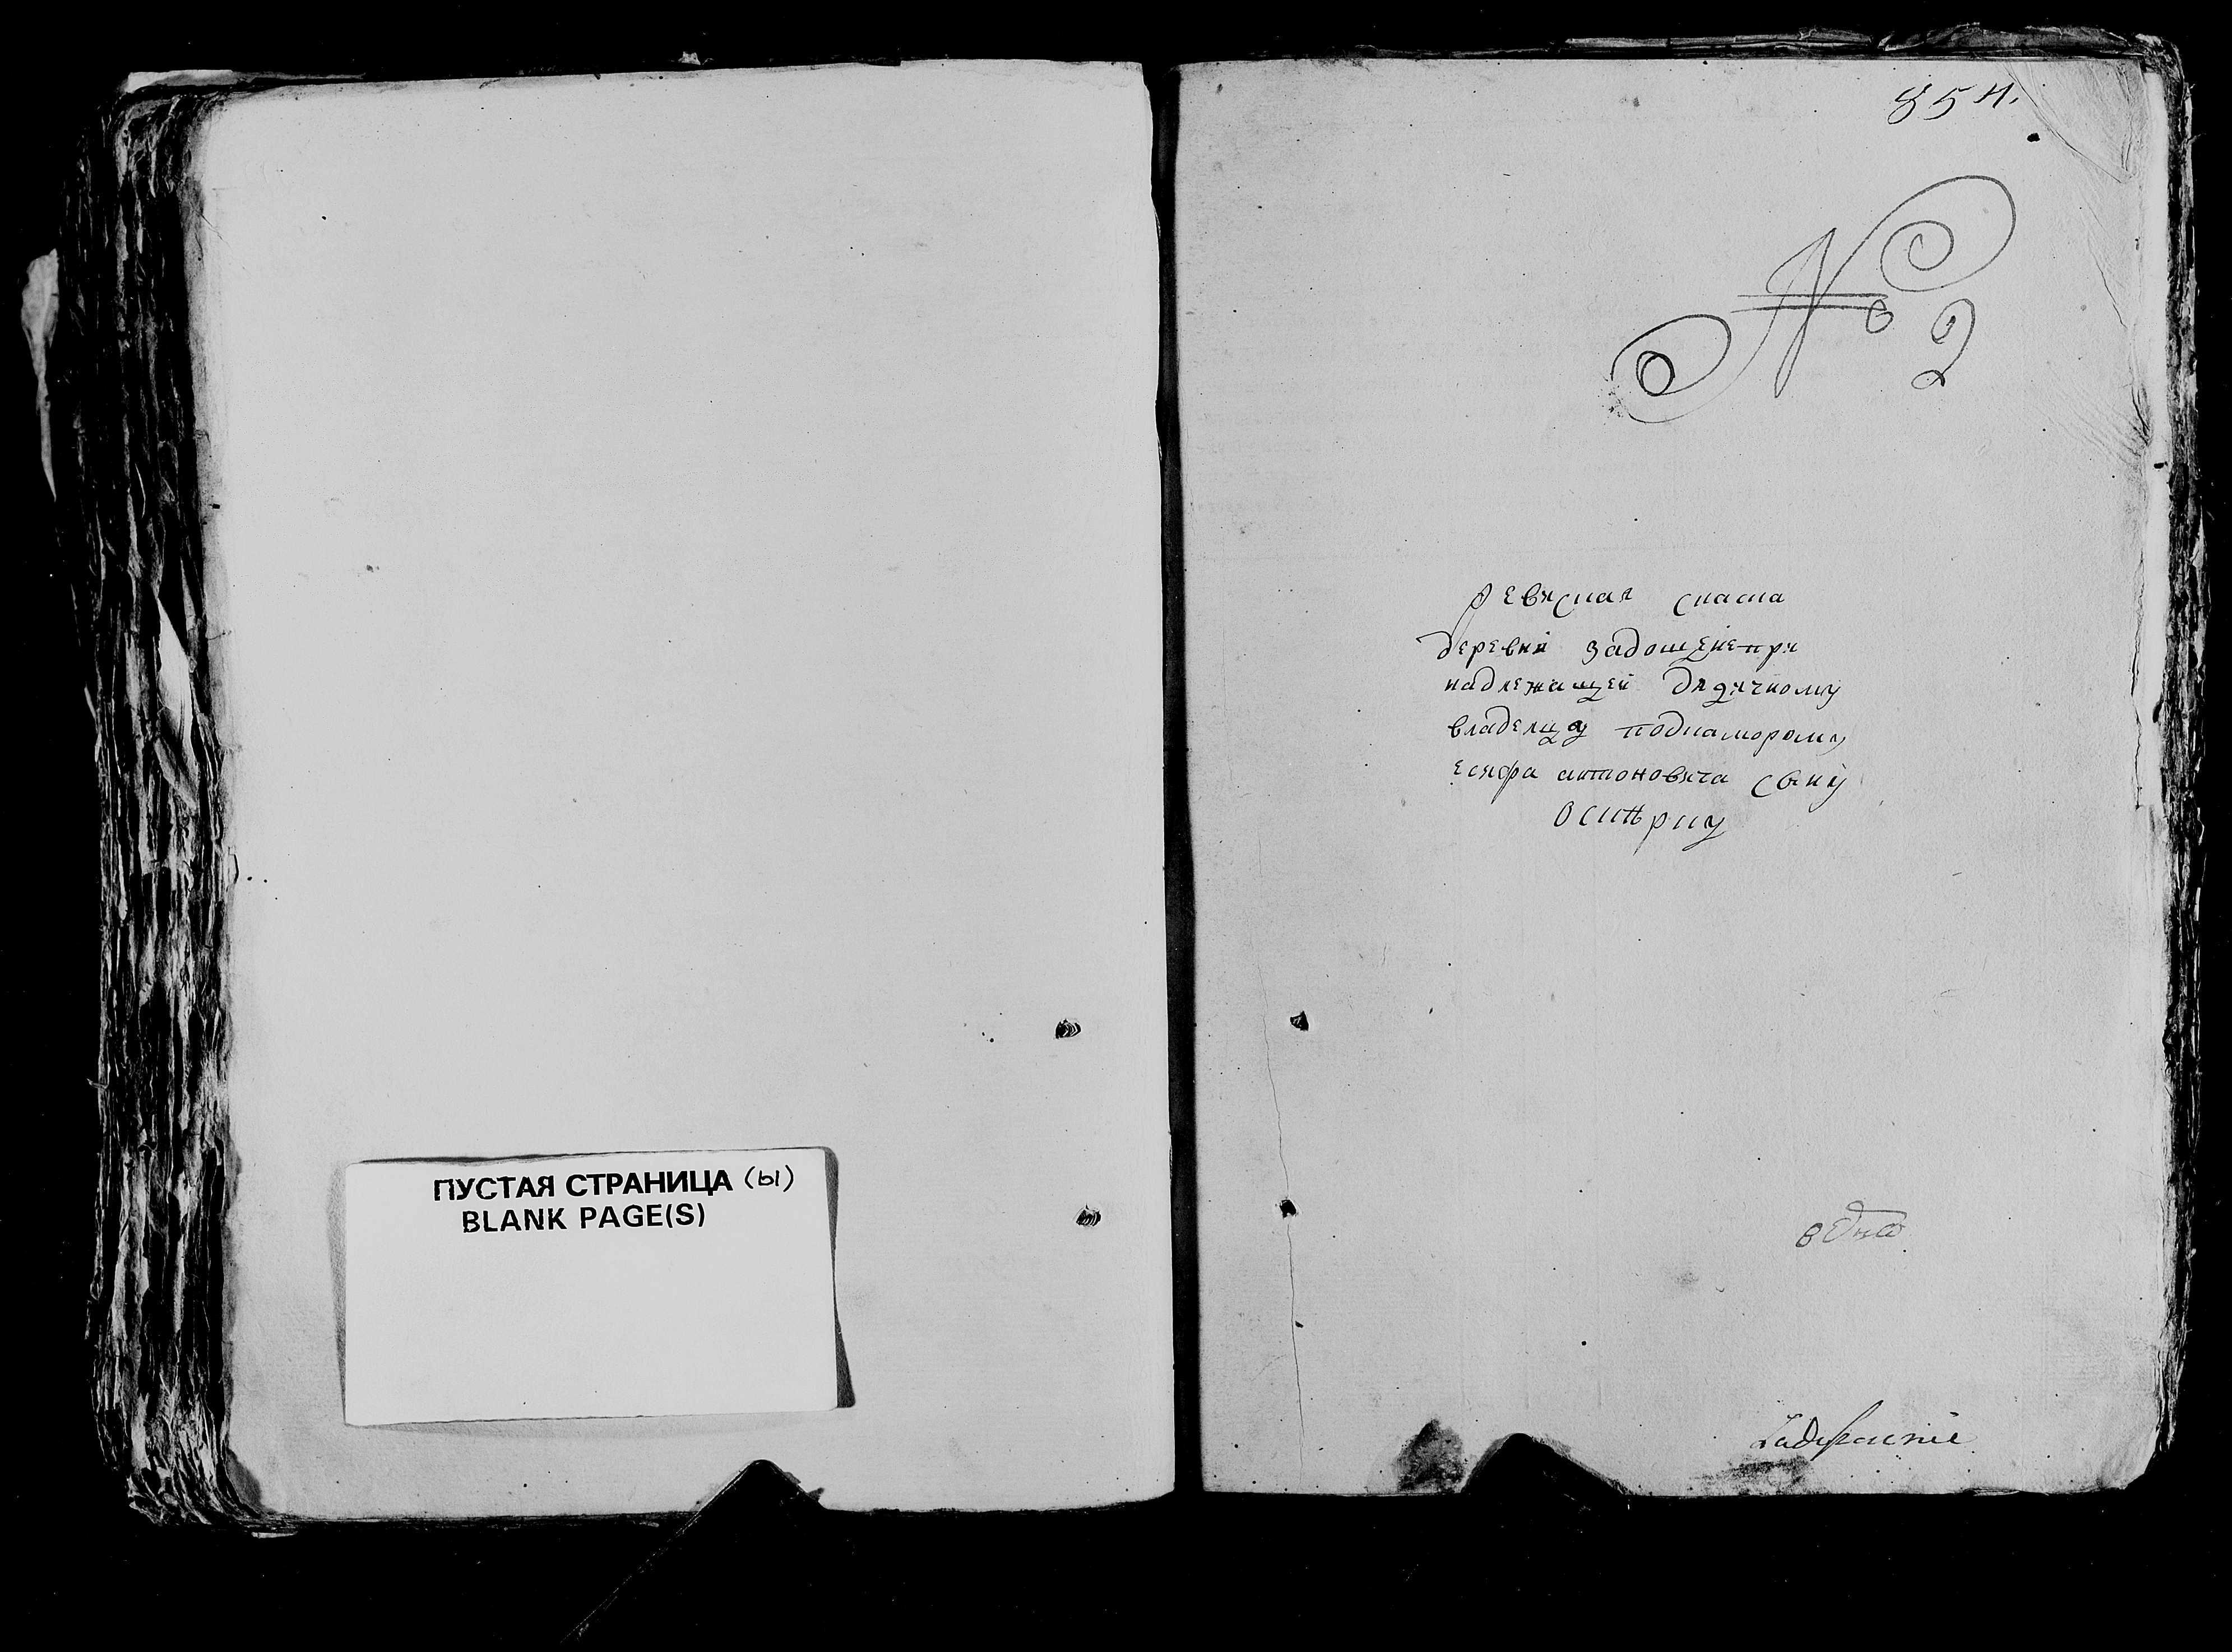 ПУСТАЯ СТРАНИЦА (ы)
BLANK PAGE(S)
854.
№ 2
ревиская скаска
деревни задощене при
надлежащей дядичному
владелцу подкаморому
есифа антоновича сыну